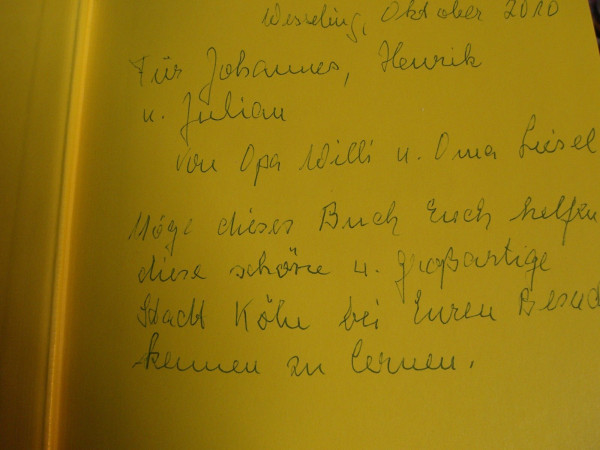 Wesseling, Oktober 2010
Für Johannes, Henrik
u. Julian
von Opa Willi u. Oma Liesel
Möge dieses Buch Euch helfen
diese schöne u. großartige
Stadt Köln bei Euren Besuch
kennen zu lernen.